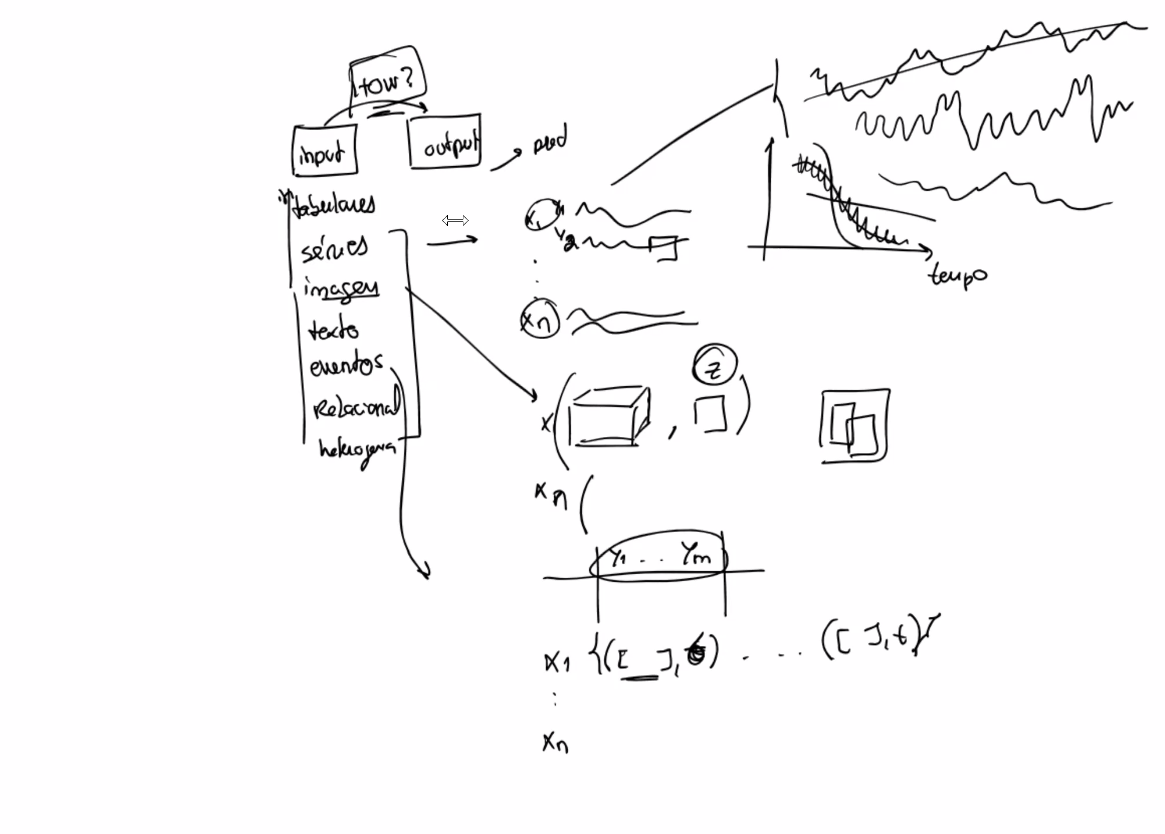 How?
input
output
pred
tabulares
séries
imagem
texto
eventos
Relacional
x1
x2
xn
tempo
x ( , z )
xn (
Y1 . . Ym
x1 {([ ], t) . . . . ([ ], t)}
xn